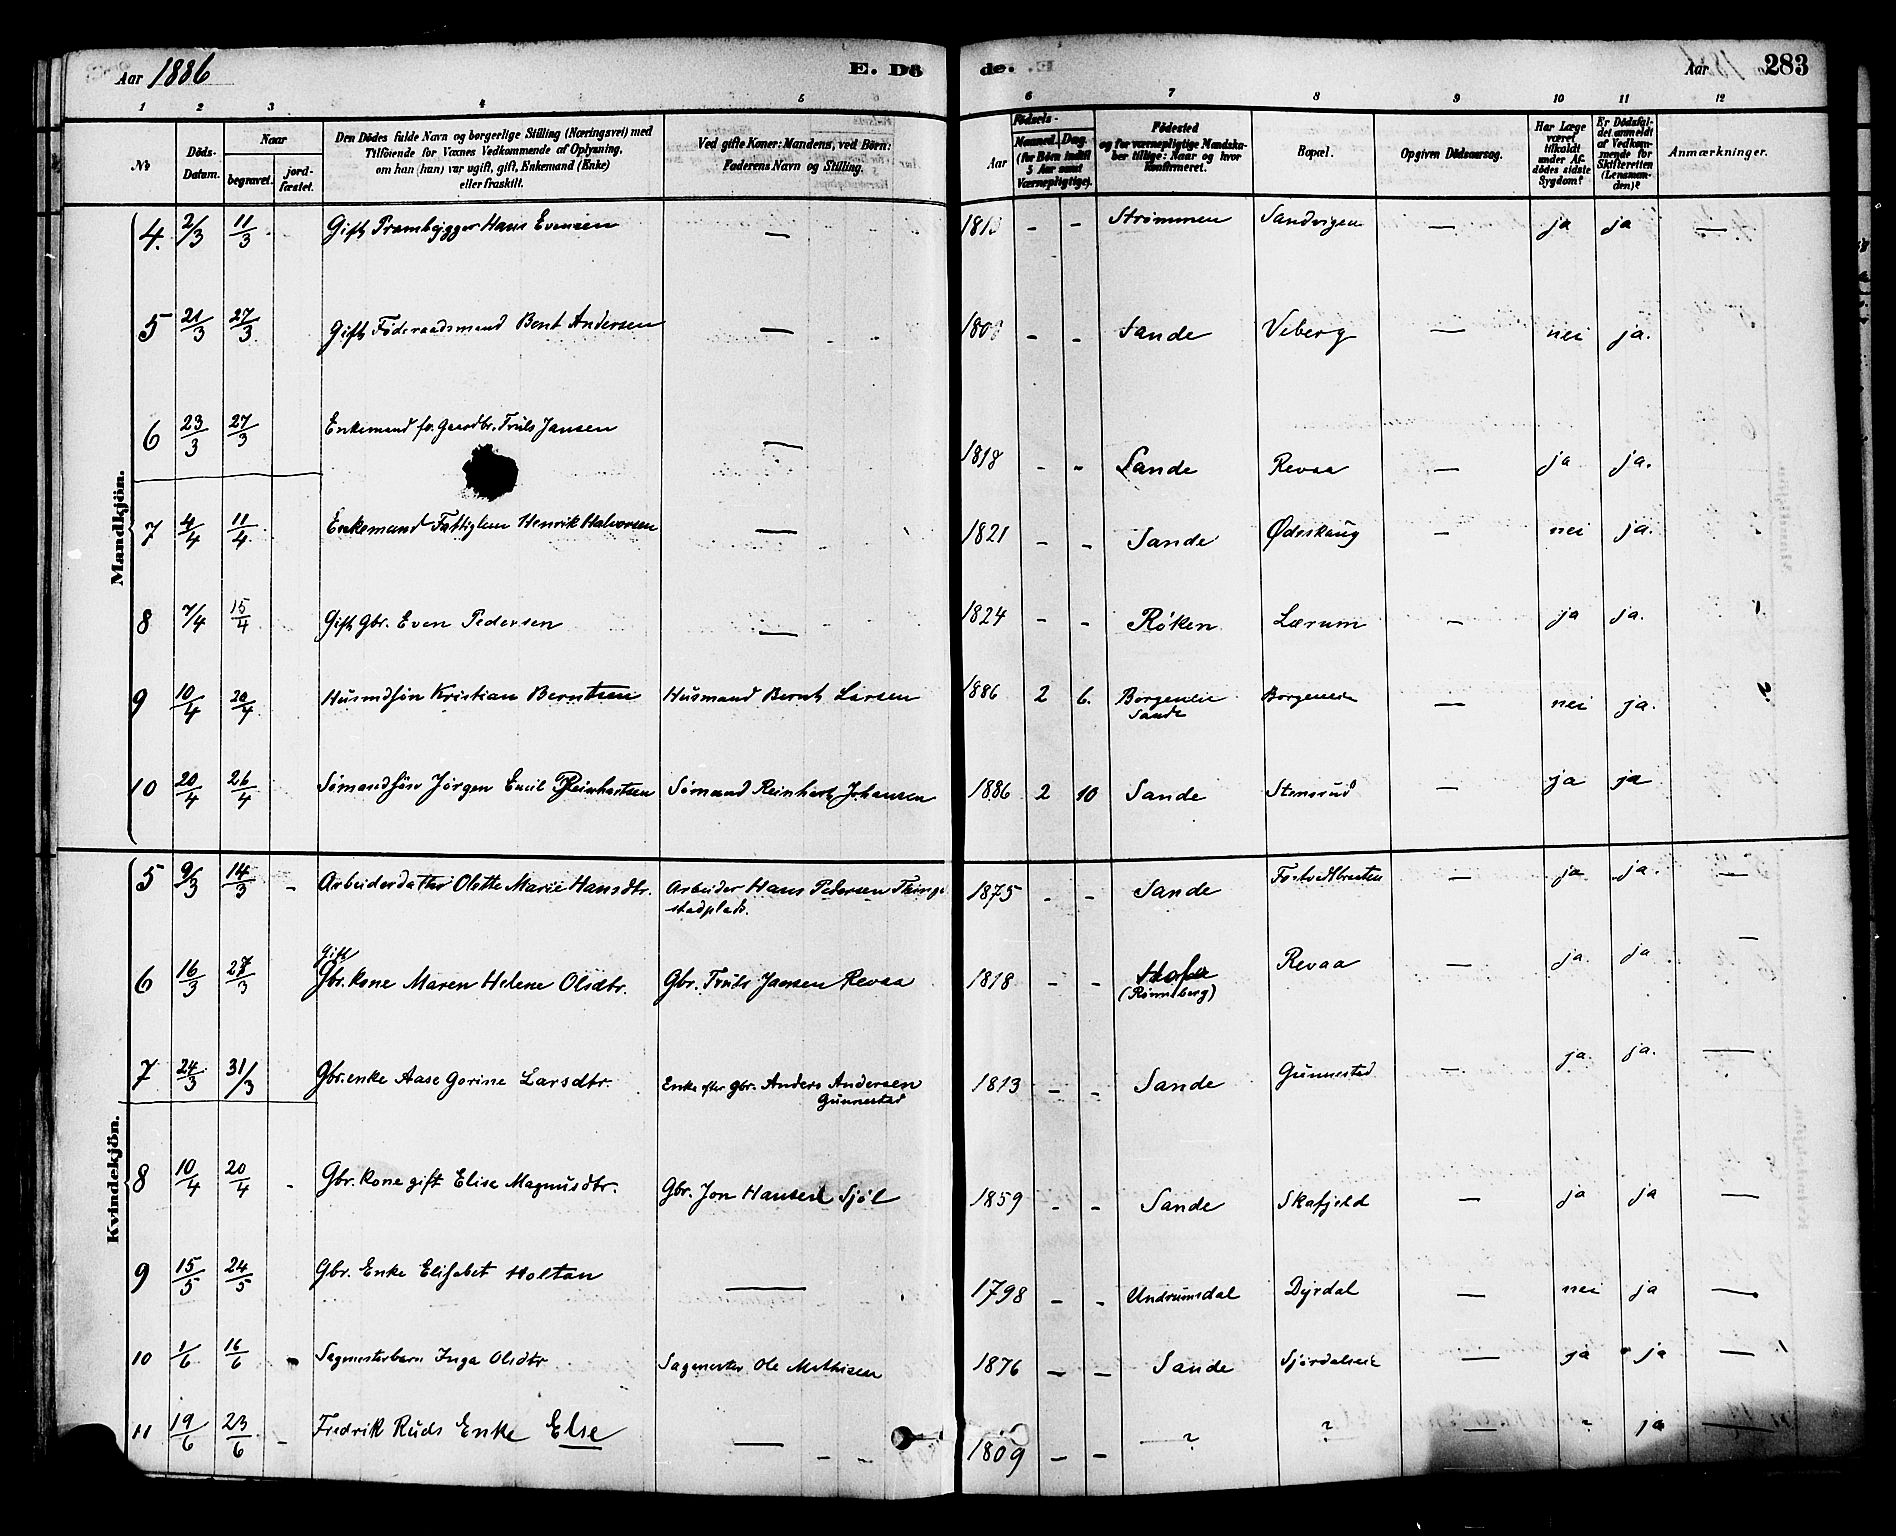 Aar 1886 E. Dö de. Aar 1886 283
1 2 3 4 5 6 7 8 9 10 11 12
No Döds-Datum. Naar begravet. jord-fæstet. Den Dödes fulde Navn og borgerlige Stilling (Næringsvei) med Tilföiende for Voxnes Vedkommende af Oplysning, om han (hun) var ugift, gift, Enkemand (Enke) eller fraskilt. Ved gifte Koner: Mandens, ved Börn: Faderens Navn og Stilling. Aar Födsels- Maaned. Dag. (for Börn indtil 5 Aar samt Værnepligtige). Födested og for værnepligtige Mandskaber tillige: Naar og hvor Konfirmeret. Bopæl. Opgiven Dödsaarsag. Har Læge været tilkaldt under Afdödes sidste Sygdom? Er Dödsfaldet anmeldt af Vedkommende for Skifteretten (Lensmanden)? Anmærkninger.
Mandkjön.
4. 2/3 11/3 Gift Prambygger Hans Evensen — - - Strømmen Sandvigen — ja ja —
5 21/3 27/3 Gift Føderaadsmand Bent Andersen — - - Sande Viberg — nei ja.
6 23/3 27/3 Enkemand fv. Gaardbr. Truls Jansen — 1818 - - Sande Revaa — ja ja.
7 4/4 11/4 Enkemand Fattiglem Henrik Halvorsen — 1821 - - Sande Ødeskaug — nei ja.
8 7/4 15/4 Gift Gbr. Even Pedersen — 1824 - - Røken Lærum — ja ja.
9 10/4 20/4 Husmdsøn Kristian Berntsen Husmand Bernt Larsen 1886 2 6. Borgeneie Borgeneie — nei ja.
Sande
10 20/4 26/4 Sømandssøn Jørgen Emil Reinhartsen Sømand Reinhart Johansen 1886 2 10 Sande Stensrud — ja ja
Kvindekjön.
5 9/3 14/3 - Arbeiderdatter Olette Marie Hansdtr. Arbeider Hans Pedersen 1875 - - Sande — ja ja. —
stadplads.
Gift
6 16/3 27/3 Gbr. kone Maren Helene Olsdtr. Gbr. Truls Jansen Revaa 1818 - - Revaa — ja ja —
7 24/3 31/3 Gbr. enke Aase Gorine Larsdtr. Enke efter gbr. Anders Andersen 1813 - - Sande Gunnestad — ja ja. —
Gunnestad
8 10/4 20/4 - Gbr. kone gift Elise Magnusdtr. Gbr. Jon Hansen Sjøl 1859 - - Sande Skafjeld — ja ja —
9 15/5 24/5 Gbr. Enke Elisabet Holtan — 1798 - - Undrumsdal Dyrdal — nei ja —
10 1/6 16/6 - Sagmesterbarn Inga Olsdtr Sagmester Ole Mathisen 1876 - - Sande — ja ja —
11 19/6 23/6 - Fredrik Ruds Enke Else — 1809 - - ? ? — ? ja —